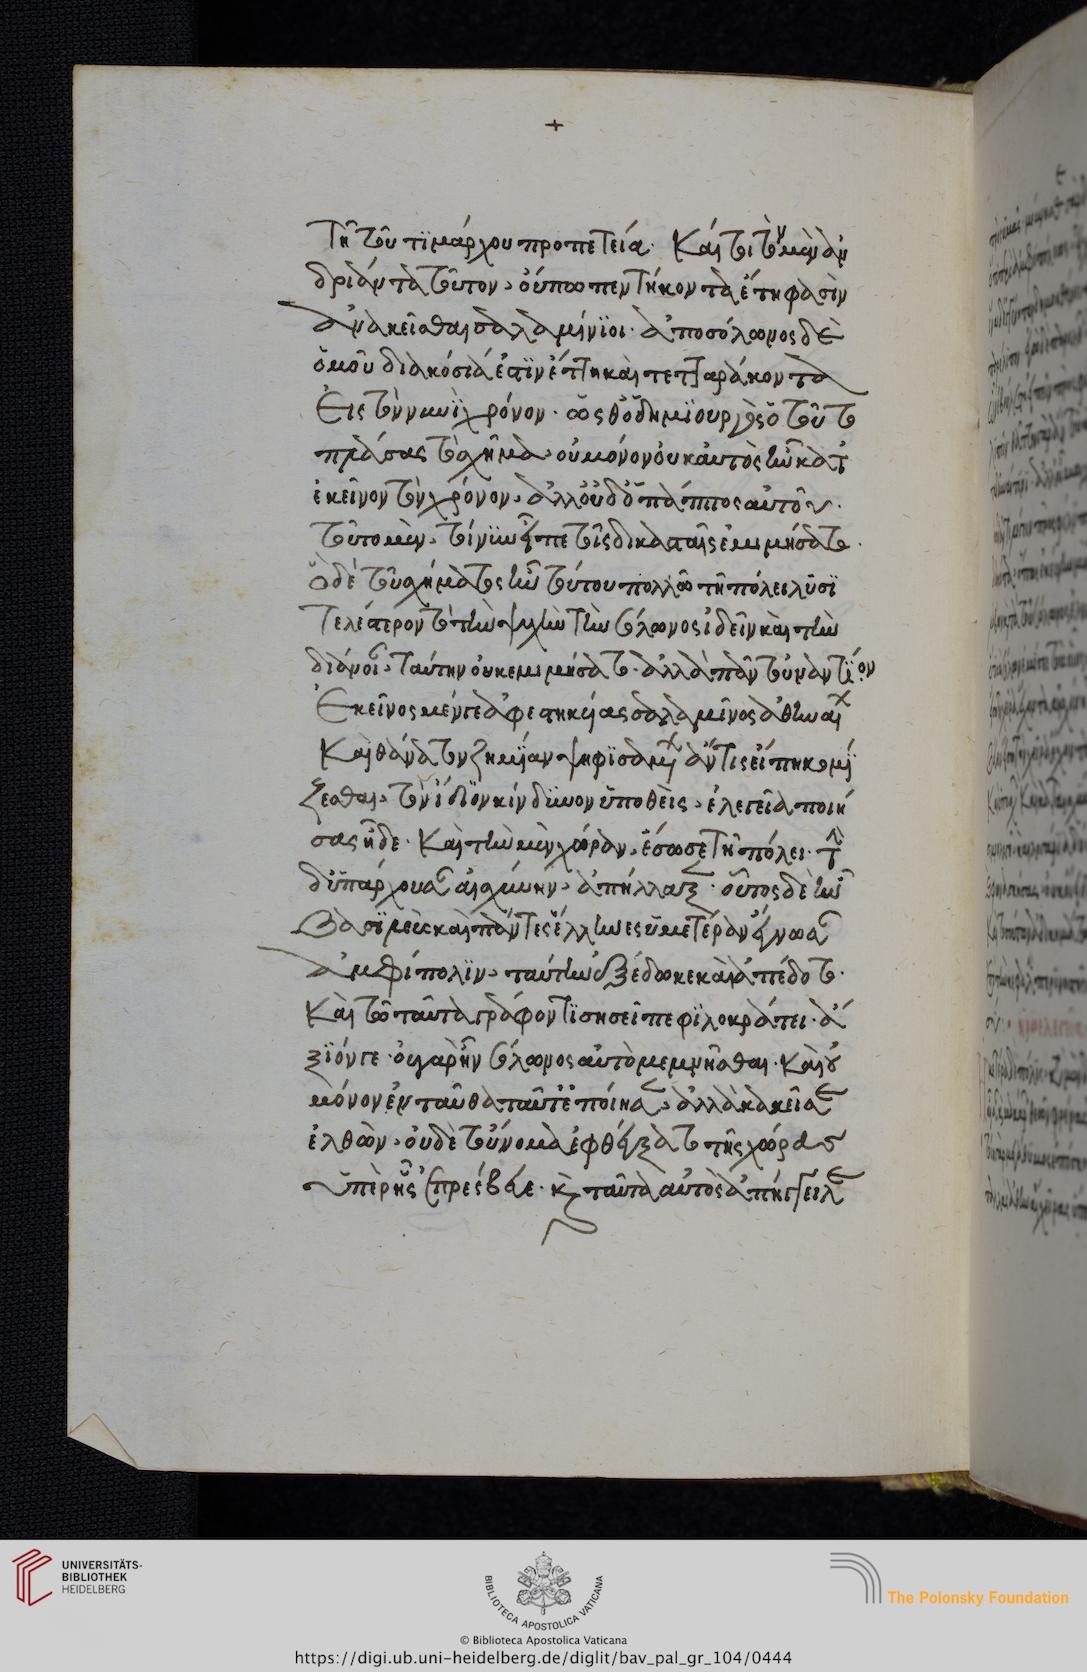 +
τῆ τοῦ τιμάρχου προπετεία. καί τοι τὸν μὲν ἀν
δριάντα τοῦτον, οὔπω πεντήκοντα ἔτη φασὶν
ἀνακεῖσθαι σαλαμίνιοι. ἀπὸ σόλωνος δὲ
ὁμοῦ διακόσιά ἐστιν ἔτη καὶ τετταράκοντα
εἰς τὸν νυνὶ χρόνον. ὥσθ' ὁ δημιουργὸς ὁ τοῦτο
πλάσας τὸ σχῆμα, οὐ μόνον οὐκ αὐτὸς ἦν κατ'
ἐκεῖνον τὸν χρόνον, ἀλλ' οὐδ' ὁ πάππος αὐτοῦ.
τοῦτο μὲν τοίνυν εἶπε τοῖς δικασταῖς ἐμιμήσατο.
ὃ δὲ τοῦ σχήματος ἦν τούτου πολλῶ τῆ πόλει λυσι
τελέστερον τὸ τὴν ψυχὴν τὴν σόλωνος ἰδεῖν καὶ τὴν
διάνοι, ταύτην οὐκ ἐμιμήσατο. ἀλλὰ πᾶν τοὐναντίον
ἐκεῖνος μέν γε ἀφεστηκυίας σαλαμῖνος ἀθηναί
καὶ θάνατον ζημίαν ψηφισαμ ἄν τις εἴπη κομί
ζεσθαι, τὸν ἴδιον κίνδυνον ὑποθεὶς, ἐλεγεῖα ποιή
σας ἦδε. καὶ τὴν μὲν χώραν, ἔσωσε τῆ πόλει. τ
δ' ὑπάρχουσ αἰσχύνην, ἀπήλλαξ. οὗτος δὲ ἣν
βασιλεὺς καὶ πάντες ἕλληνες ὑμετέραν ἔγνωσ
ἀμφίπολιν, ταύτην ἐξέδωκε καὶ ἀπέδοτο.
καὶ τῶ ταῦτα γράφοντι συνεῖπε φιλοκράτει. ἄ
ξιόν γε. οὐ γὰρ ἦν σόλωνος αὐτὸ μεμνῆσθαι. καὶ οὐ
μόνον ἐνταῦθα ταῦτ' ἐποίησ, ἀλλὰ κἀκεῖσε
ἐλθὼν, οὐδὲ τοὔνομα ἐφθέγξατο τῆς χώρας
ὑπὲρ ἧς ἐπρέσβευε. καὶ ταῦτα αὐτὸς ἀπήγγειλε
UNIVERSITÄTS-
BIBLIOTHEK
HEIDELBERG
BIBLIOTECA APOSTOLICA VATICANA
The Polonsky Foundation
© Biblioteca Apostolica Vaticana
https://digi.ub.uni-heidelberg.de/diglit/bav_pal_gr_104/0444